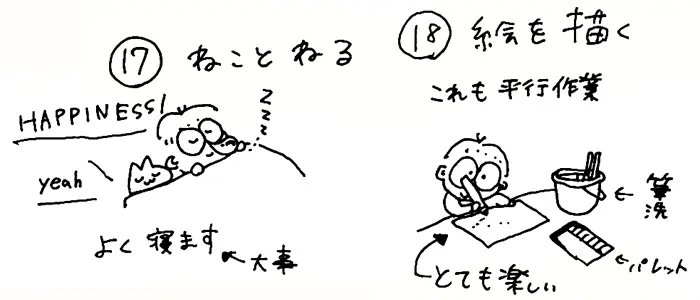 ⑰ ねことねる
HAPPINESS!
zzz
yeah
よく寝ます
大事
⑱ 絵を描く
これも平行作業
筆洗
パレット
とても楽しい